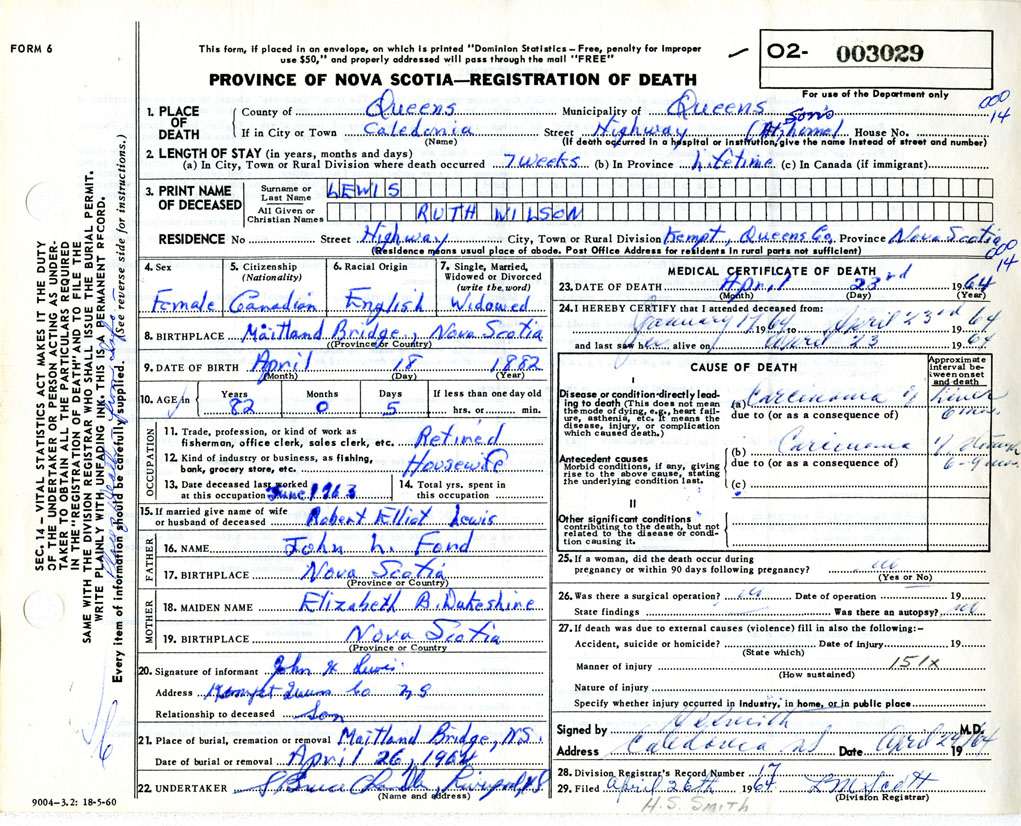 FORM 6
This form, if placed in an envelope, on which is printed "Dominion Statistics—Free, penalty for improper
use $50," and properly addressed will pass through the mail "FREE"
PROVINCE OF NOVA SCOTIA—REGISTRATION OF DEATH
O2- 003029
For use of the Department only
000
14
SEC. 14 – VITAL STATISTICS ACT MAKES IT THE DUTY
OF THE UNDERTAKER OR PERSON ACTING AS UNDER-
TAKER TO OBTAIN ALL THE PARTICULARS REQUIRED
IN THE "REGISTRATION OF DEATH" AND TO FILE THE
SAME WITH THE DIVISION REGISTRAR WHO SHALL ISSUE THE BURIAL PERMIT.
WRITE PLAINLY WITH UNFADING INK. THIS IS A PERMANENT RECORD.
Every item of information should be carefully supplied. (See reverse side for instructions.)
1. PLACE OF DEATH
County of Queens Municipality of Queens
If in City or Town Caledonia Street Highway (At Son's home) House No.
(Name) (If death occurred in a hospital or institution, give the name instead of street and number)
2. LENGTH OF STAY (in years, months and days)
(a) In City, Town or Rural Division where death occurred 7 weeks (b) In Province Lifetime (c) In Canada (if immigrant)
3. PRINT NAME OF DECEASED
Surname or Last Name LEWIS
All Given or Christian Names RUTH WILSON
RESIDENCE No Street Highway City, Town or Rural Division Kempt, Queens Co. Province Nova Scotia
(Residence means usual place of abode. Post Office Address for residents in rural parts not sufficient)
000
14
4. Sex Female
5. Citizenship (Nationality) Canadian
6. Racial Origin English
7. Single, Married, Widowed or Divorced (write the word) Widowed
8. BIRTHPLACE Maitland Bridge, Nova Scotia
(Province or Country)
9. DATE OF BIRTH April 18 1882
(Month) (Day) (Year)
10. AGE in Years 82 Months 0 Days 5 If less than one day old hrs. or min.
OCCUPATION
11. Trade, profession, or kind of work as fisherman, office clerk, sales clerk, etc. Retired
12. Kind of industry or business, as fishing, bank, grocery store, etc. Housewife
13. Date deceased last worked at this occupation June 1963
14. Total yrs. spent in this occupation
15. If married give name of wife or husband of deceased Robert Elliot Lewis
FATHER
16. NAME John L. Ford
17. BIRTHPLACE Nova Scotia
(Province or Country)
MOTHER
18. MAIDEN NAME Elizabeth B. Dakeshire
19. BIRTHPLACE Nova Scotia
(Province or Country
20. Signature of informant John H Lewis
Address Kempt Queens Co NS
Relationship to deceased Son
21. Place of burial, cremation or removal Maitland Bridge, N.S.
Date of burial or removal April 26, 1964
22. UNDERTAKER
(Name and address)
9004–3.2: 18-5-60
MEDICAL CERTIFICATE OF DEATH
23. DATE OF DEATH April 23rd 1964
(Month) (Day) (Year)
24. I HEREBY CERTIFY that I attended deceased from:
January 1964 to April 23rd 1964
and last saw her alive on April 23 1964
CAUSE OF DEATH
Approximate interval between onset and death
I
Disease or condition directly leading to death (This does not mean the mode of dying, e.g., heart failure, asthenia, etc. It means the disease, injury, or complication which caused death.)
(a) Carcinoma of Liver 6 mos.
due to (or as a consequence of)
Antecedent causes
Morbid conditions, if any, giving rise to the above cause, stating the underlying condition last.
(b) Carcinoma of Stomach 6-9 mos.
due to (or as a consequence of)
(c)
II
Other significant conditions
contributing to the death, but not related to the disease or condition causing it.
25. If a woman, did the death occur during
pregnancy or within 90 days following pregnancy? no
(Yes or No)
26. Was there a surgical operation? Date of operation 19
State findings Was there an autopsy? no
27. If death was due to external causes (violence) fill in also the following:-
Accident, suicide or homicide? Date of injury 19
(State which)
Manner of injury 151x
(How sustained)
Nature of injury
Specify whether injury occurred in Industry, in home, or in public place
Signed by H S Smith M.D.
Address Caledonia NS Date April 24 1964
28. Division Registrar's Record Number 17
29. Filed April 26th 1964 L M Scott
(Division Registrar)
H.S. SMITH